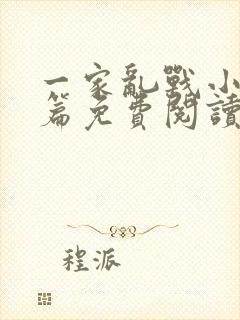 一家亂戰小
篇免費閱讀
程派